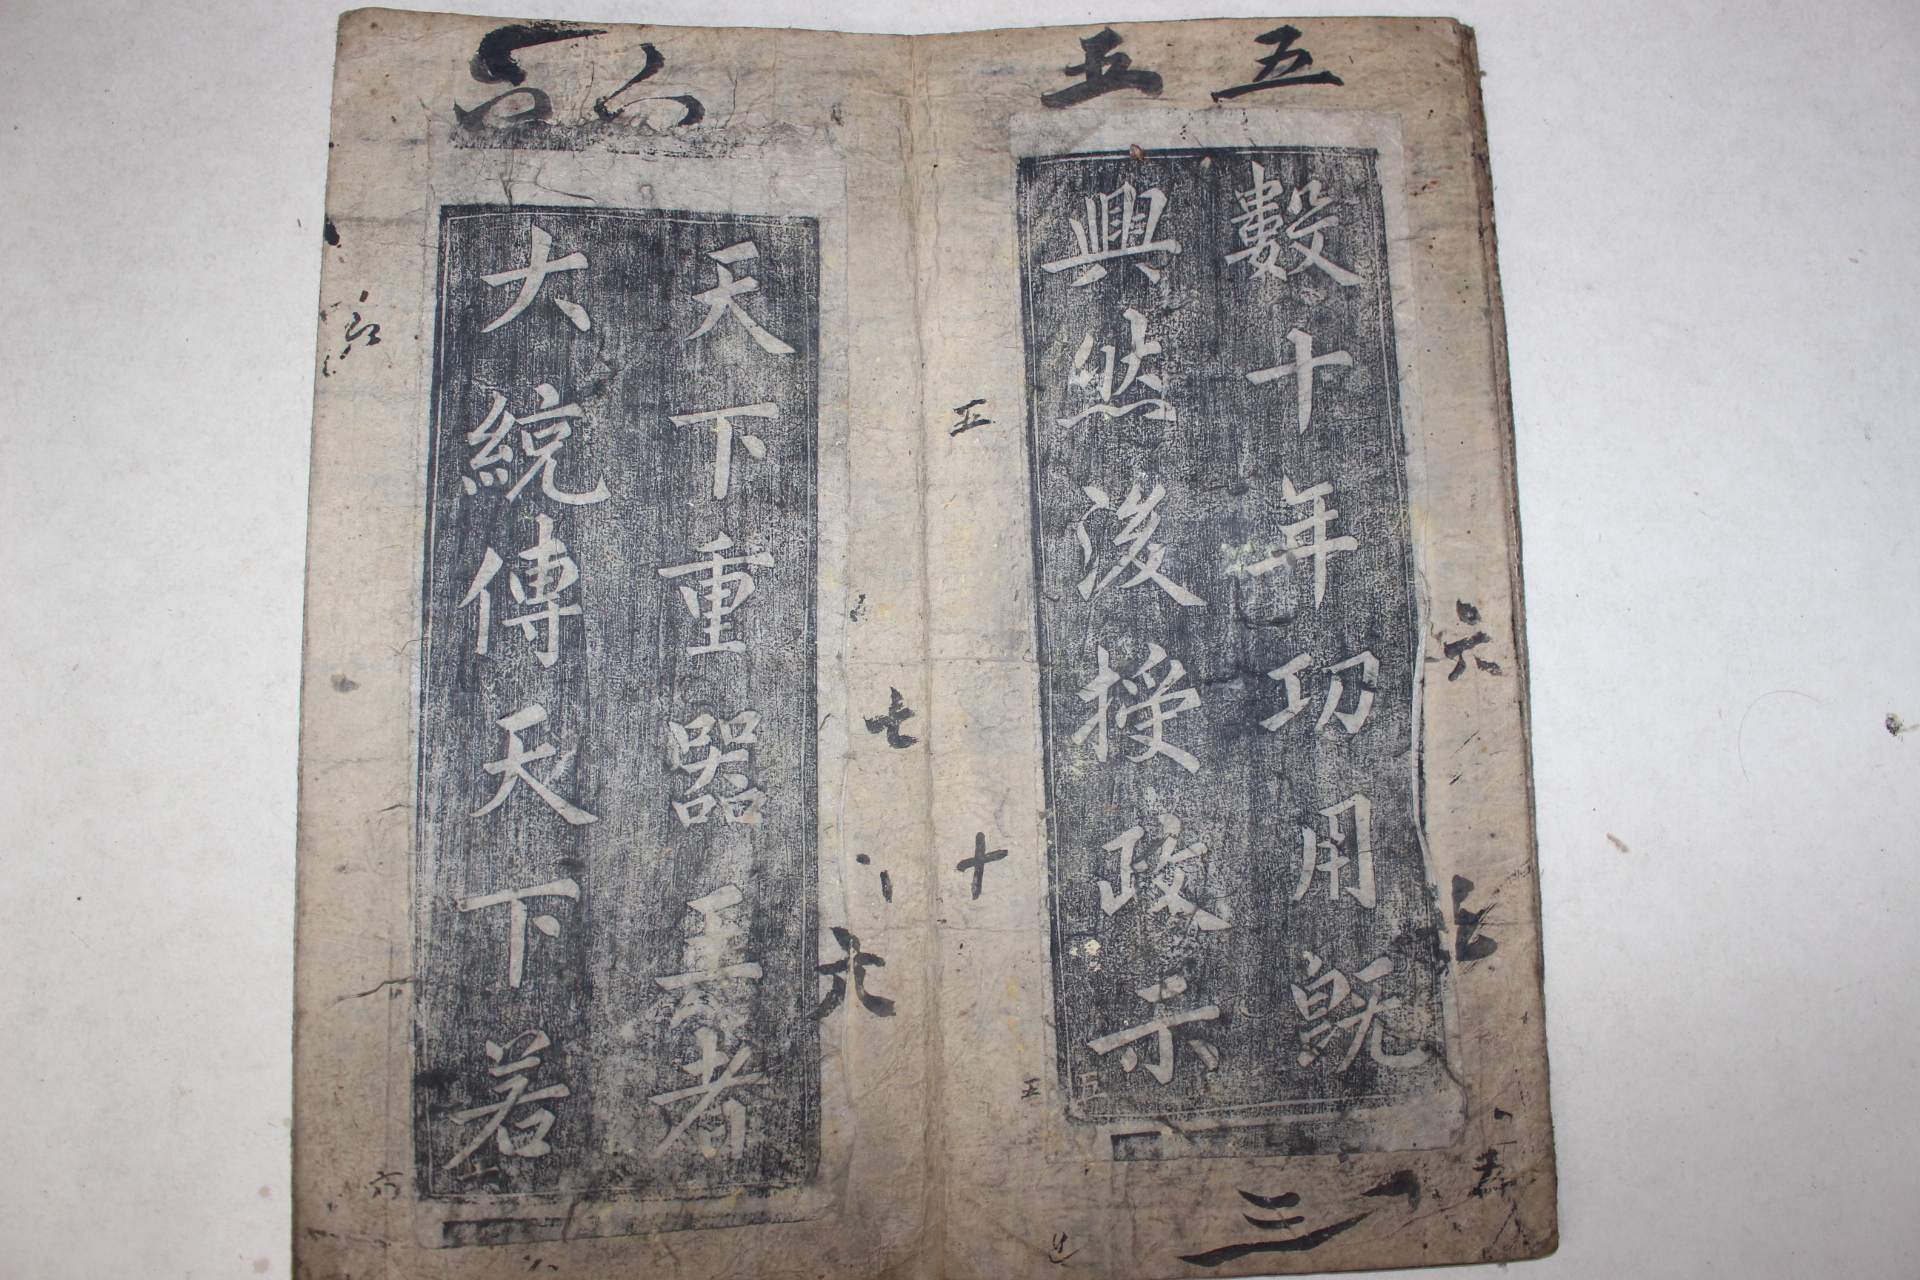 五
五
數十年功用旣
興然後授政示
天下重器王者
大統傳天下若
六
七
五
十
七
六
三
五
五
六